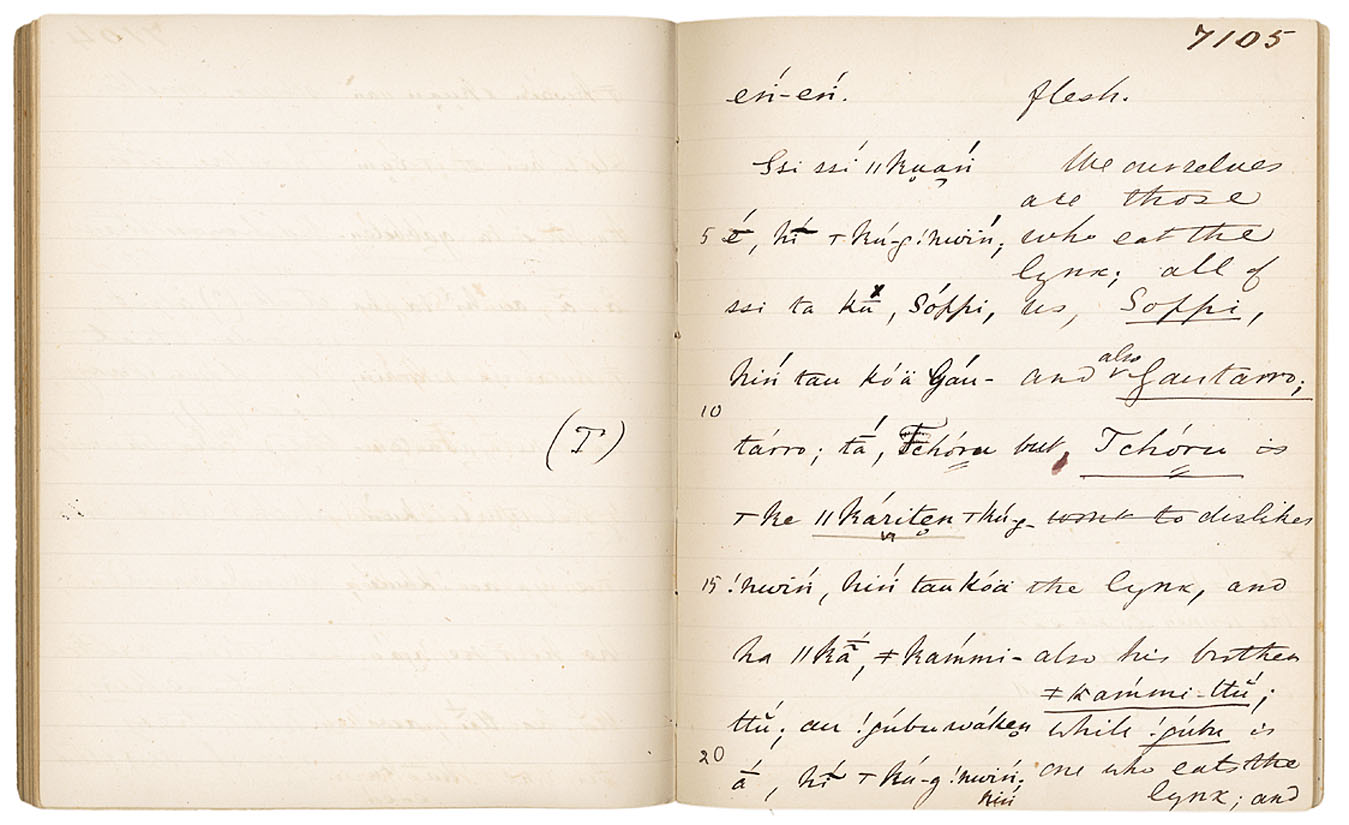 7105
eń-eń. flesh.
Ssi ssí ǁkuań We ourselves
are those
5 é̄, hí ⊤kú-g!nwiń; who eat the
lynx; all of
ssi ta kū ˣ, Sóppi, us, Soppi,
hiń tau kóä Gáu- and also Gautarro;
10
tárro; tā́, Tchóru but, Tchóru is
(I)
⊤ke ǁkáriten ⊤kú-g- wont to dislikes
15 !nwiń, hiń tau kóä the lynx, and
ha ǁkā̃́, ǂkam̋mi- also his brother
ǂkam̋mi-ttŭ;
ttŭ; au !gúbu wáken while !gúbu is
20
ā́, hí ⊤kú-g!nwiń; one who eats the
hiń lynx; and